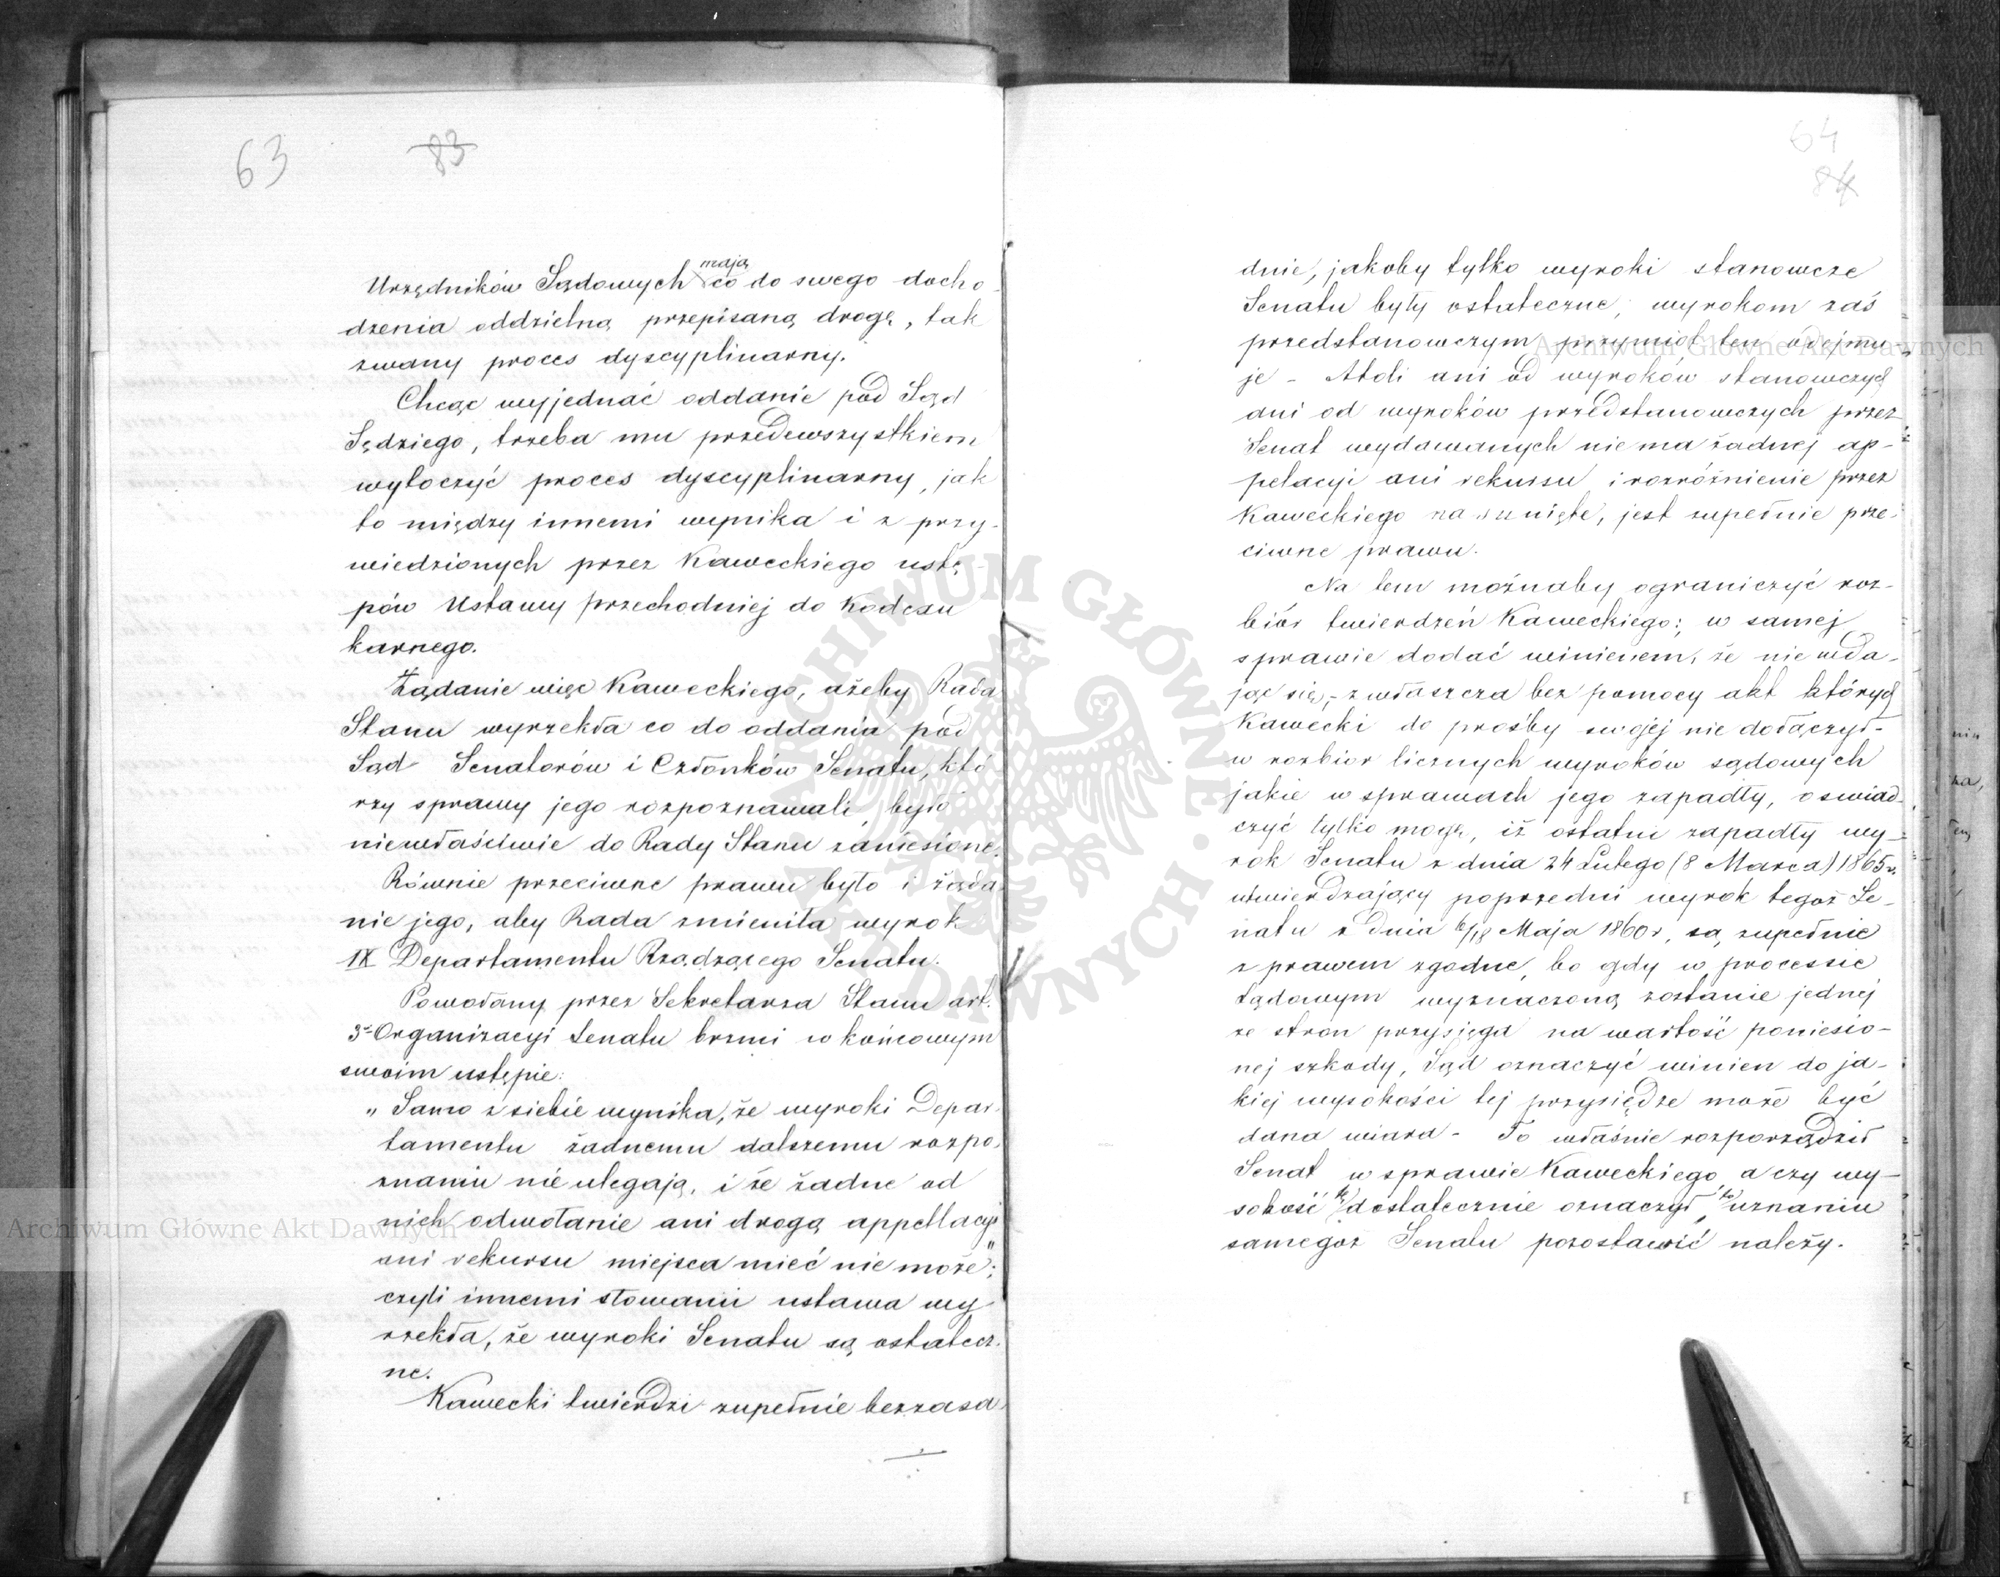 63 83
Urzędników Sądowych mają co do swego docho-
dzenia oddzielną przepisaną drogę, tak
zwany proces dyscyplinarny.
Chcąc wyjednać oddanie pod Sąd
Sędziego, trzeba mu przedewszystkiem
wytoczyć proces dyscyplinarny, jak
to między innemi wynika i z przy-
wiedzionych przez Kaweckiego ustę-
pów Ustawy przechodniej do Kodexu
karnego.
Żądanie więc Kaweckiego, ażeby Rada
Stanu wyrzekła co do oddania pod
Sąd Senatorów i Członków Senatu, któ-
rzy sprawy jego rozpoznawali, było
niewłaściwie do Rady Stanu zaniesione.
Równie przeciwne prawu było i żąda-
nie jego, aby Rada zmieniła wyrok
IX Departamentu Rządzącego Senatu.
Powołany przez Sekretarza Stanu art.
3 Organizacyi Senatu brzmi w końcowym
swoim ustępie:
„Samo z siebie wynika, że wyroki Depar-
tamentu żadnemu dalszemu rozpo-
znaniu nie ulegają, i że żadne od
nich odwołanie ani drogą appellacyi
ani rekursu miejsca mieć nie może";
czyli innemi słowami ustawa wy-
rzekła, że wyroki Senatu są ostatecz-
ne.
Kawecki twierdzi zupełnie bezzasa-
64
84
dnie, jakoby tylko wyroki stanowcze
Senatu były ostateczne, wyrokom zaś
przedstanowczym przymiot ten odejmu-
je - Atoli ani od wyroków stanowczych
ani od wyroków przedstanowczych przez
Senat wydawanych nie ma żadnej ap-
pelacyi ani rekursu i rozróżnienie przez
Kaweckiego nasunięte, jest zupełnie prze-
ciwne prawu.
Na tem możnaby ograniczyć roz-
biór twierdzeń Kaweckiego; w samej
sprawie dodać winienem, że nie wda-
jąc się, - zwłaszcza bez pomocy akt których
Kawecki do prośby swojej nie dołączył -
w rozbior licznych wyroków sądowych
jakie w sprawach jego zapadły, oświad-
czyć tylko mogę, iż ostatni zapadły wy-
rok Senatu z dnia 24 Lutego (8 Marca) 1865 r.
utwierdzający poprzedni wyrok tegoż Se-
natu z dnia 6/18 Maja 1860 r, są zupełnie
z prawem zgodne, bo gdy w processie
Sądowym wyznaczoną zostanie jednej
ze stron przysięga na wartość poniesio-
nej szkody, Sąd oznaczyć winien do ja-
kiej wysokości tej przysiędze może być
dana wiara - To właśnie rozporządził
Senat w sprawie Kaweckiego, a czy wy-
sokość tę dostatecznie oznaczył, to uznaniu
samegoż Senatu pozostawić należy.
Archiwum Główne Akt Dawnych
ARCHIWUM GŁÓWNE AKT DAWNYCH
Archiwum Główne Akt Dawnych